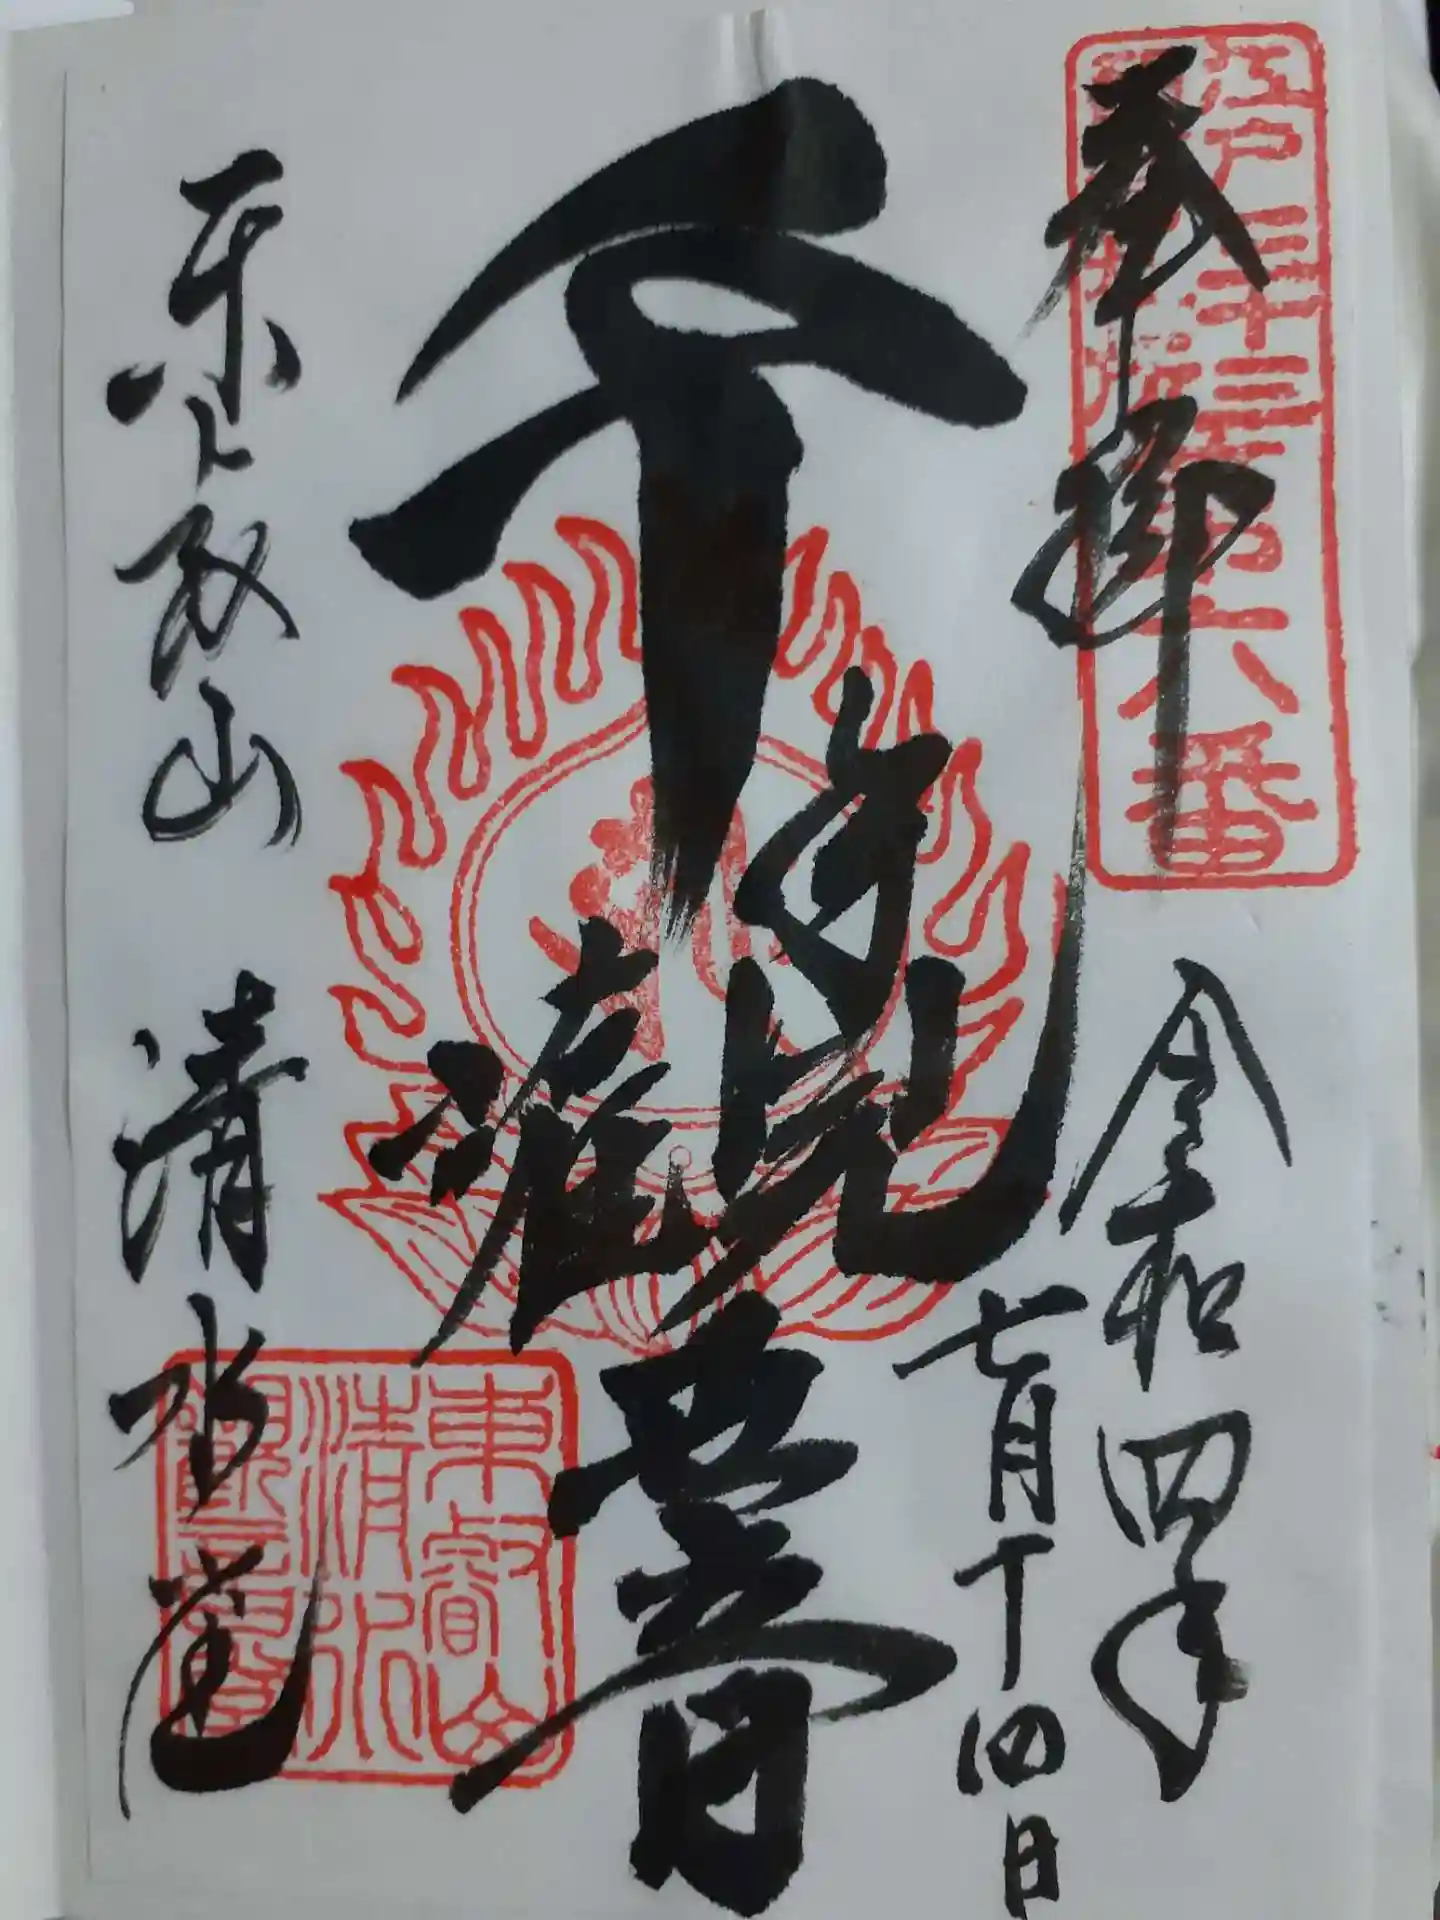 奉拝
江戸三十三所第六番
令和四年
七月十四日
千手観世音
東叡山
清水堂
東叡山
清水